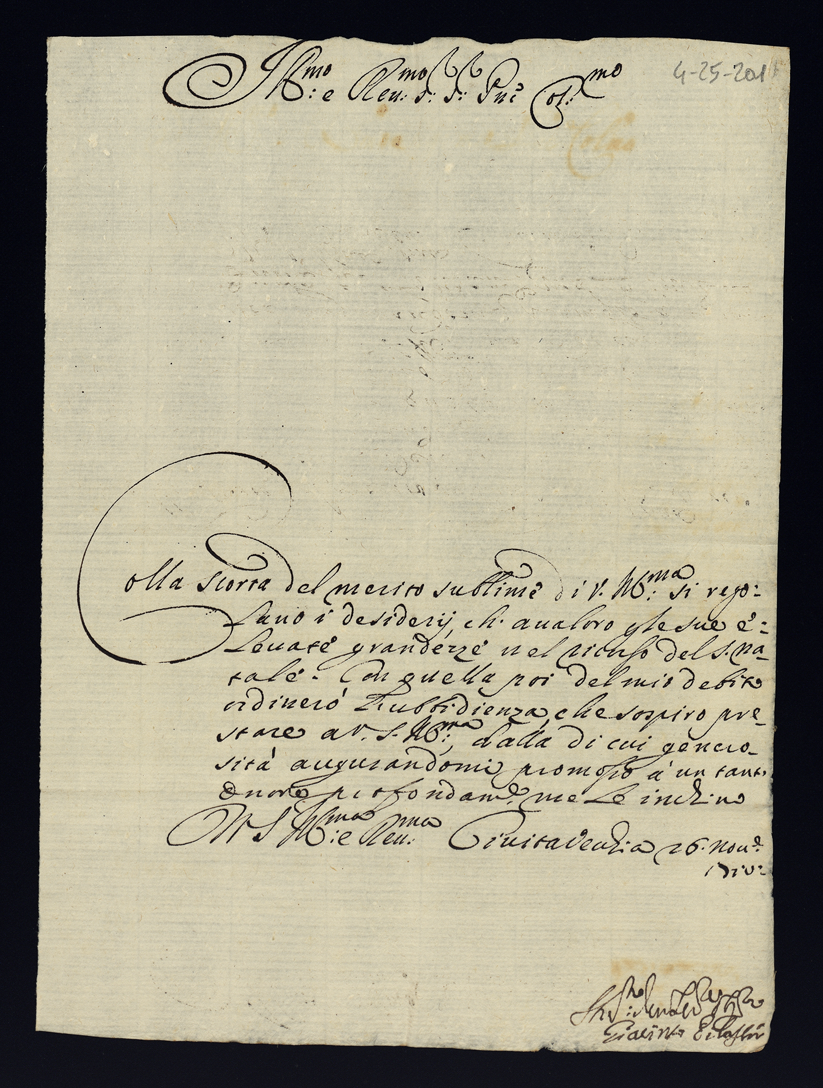 Ill:mo e Reu:mo S: S: Pne Col:mo
4-25-201
Colla scorta del merito sublime di V. Ill:ma si rego-
lano i desiderij, ch. aualoro gle sue é-
leuate grandezze nel ricorso del S. Na-
tale. Con quella poi del mio debito
ordineró l'ubbidienza, che sospiro pre-
stare a V. S. Ill:ma, dalla di cui genero-
sitá augurandomi promosso á un tant.
onore profondam.e me le inchino
Di V S Ill:ma e Reu:ma Ciuitauechia 26. Nou.e
Giacinto